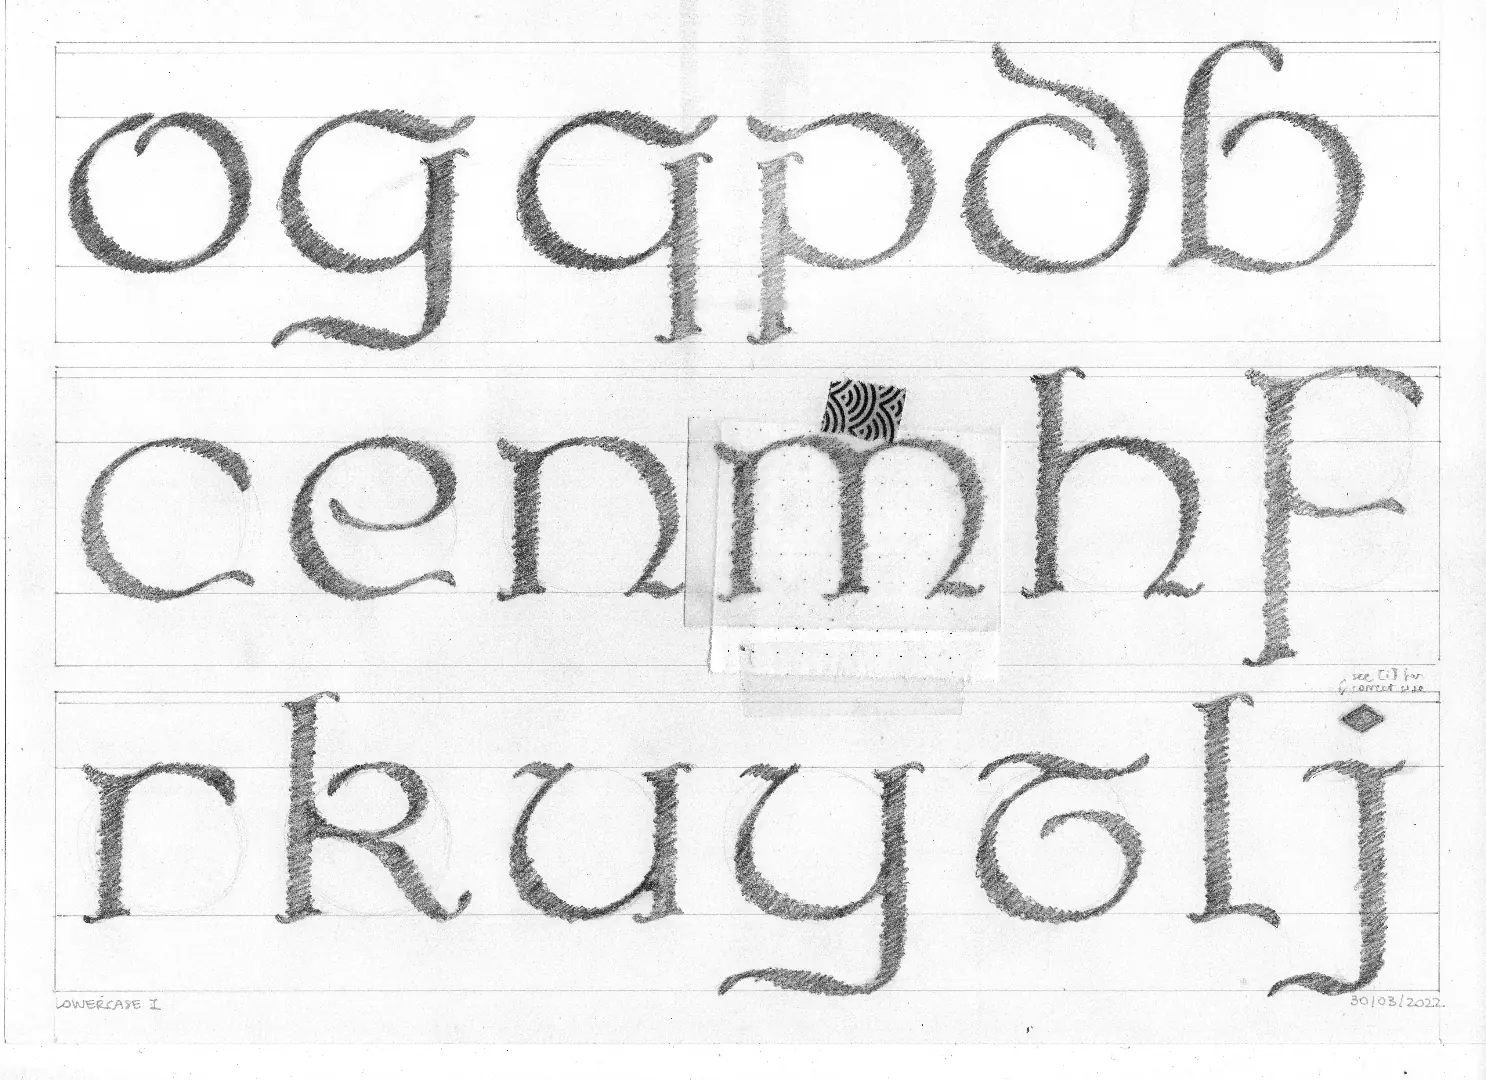 o g q p d b
c e n m h f
see [i] for
correct size
r k u y l j
LOWERCASE I
30/03/2022